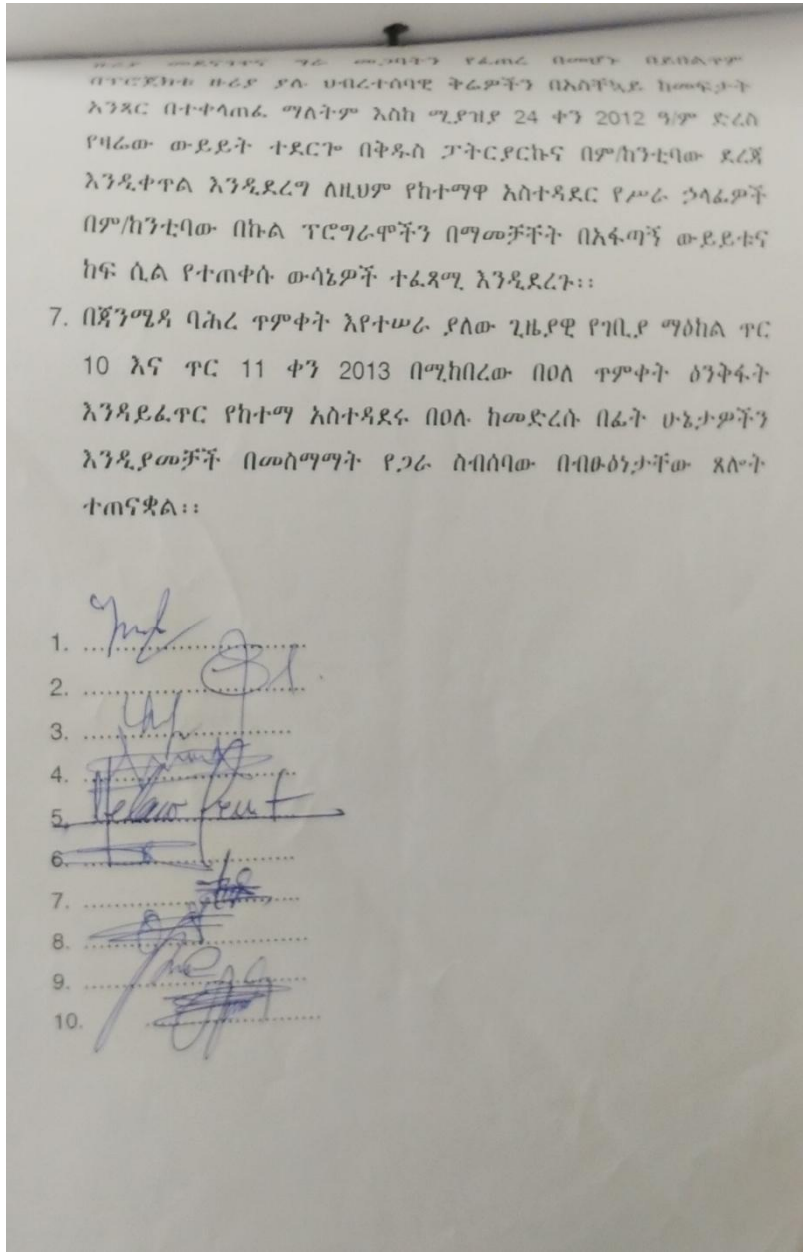 በፕሮጀክቱ ዙሪያ ያሉ ህብረተሰባዊ ቅሬዎችን በአስቸኳይ ከመፍታት
አንጻር በተቀላጠፈ ማለትም እስከ ሚያዝያ 24 ቀን 2012 ዓ/ም ድረስ
የዛሬው ውይይት ተደርጎ በቅዱስ ፓትርያርኩና በም/ከንቲባው ደረጃ
እንዲቀጥል እንዲደረግ ለዚህም የከተማዋ አስተዳደር የሥራ ኃላፊዎች
በም/ከንቲባው በኩል ፕሮግራሞችን በማመቻቸት በአፋጣኝ ውይይቱና
ከፍ ሲል የተጠቀሱ ውሳኔዎች ተፈጻሚ እንዲደረጉ፡፡
7. በጃንሜዳ ባሕረ ጥምቀት እየተሠራ ያለው ጊዜያዊ የገቢያ ማዕከል ጥር
10 እና ጥር 11 ቀን 2013 በሚከበረው በዐለ ጥምቀት ዕንቅፋት
እንዳይፈጥር የከተማ አስተዳደሩ በዐሉ ከመድረሱ በፊት ሁኔታዎችን
እንዲያመቻች በመስማማት የጋራ ስብሰባው በብፁዕነታቸው ጸሎት
ተጠናቋል፡፡
1. ........................
2. ........................
3. ........................
4. ........................
5. ........................
6. ........................
7. ........................
8. ........................
9. ........................
10. ........................